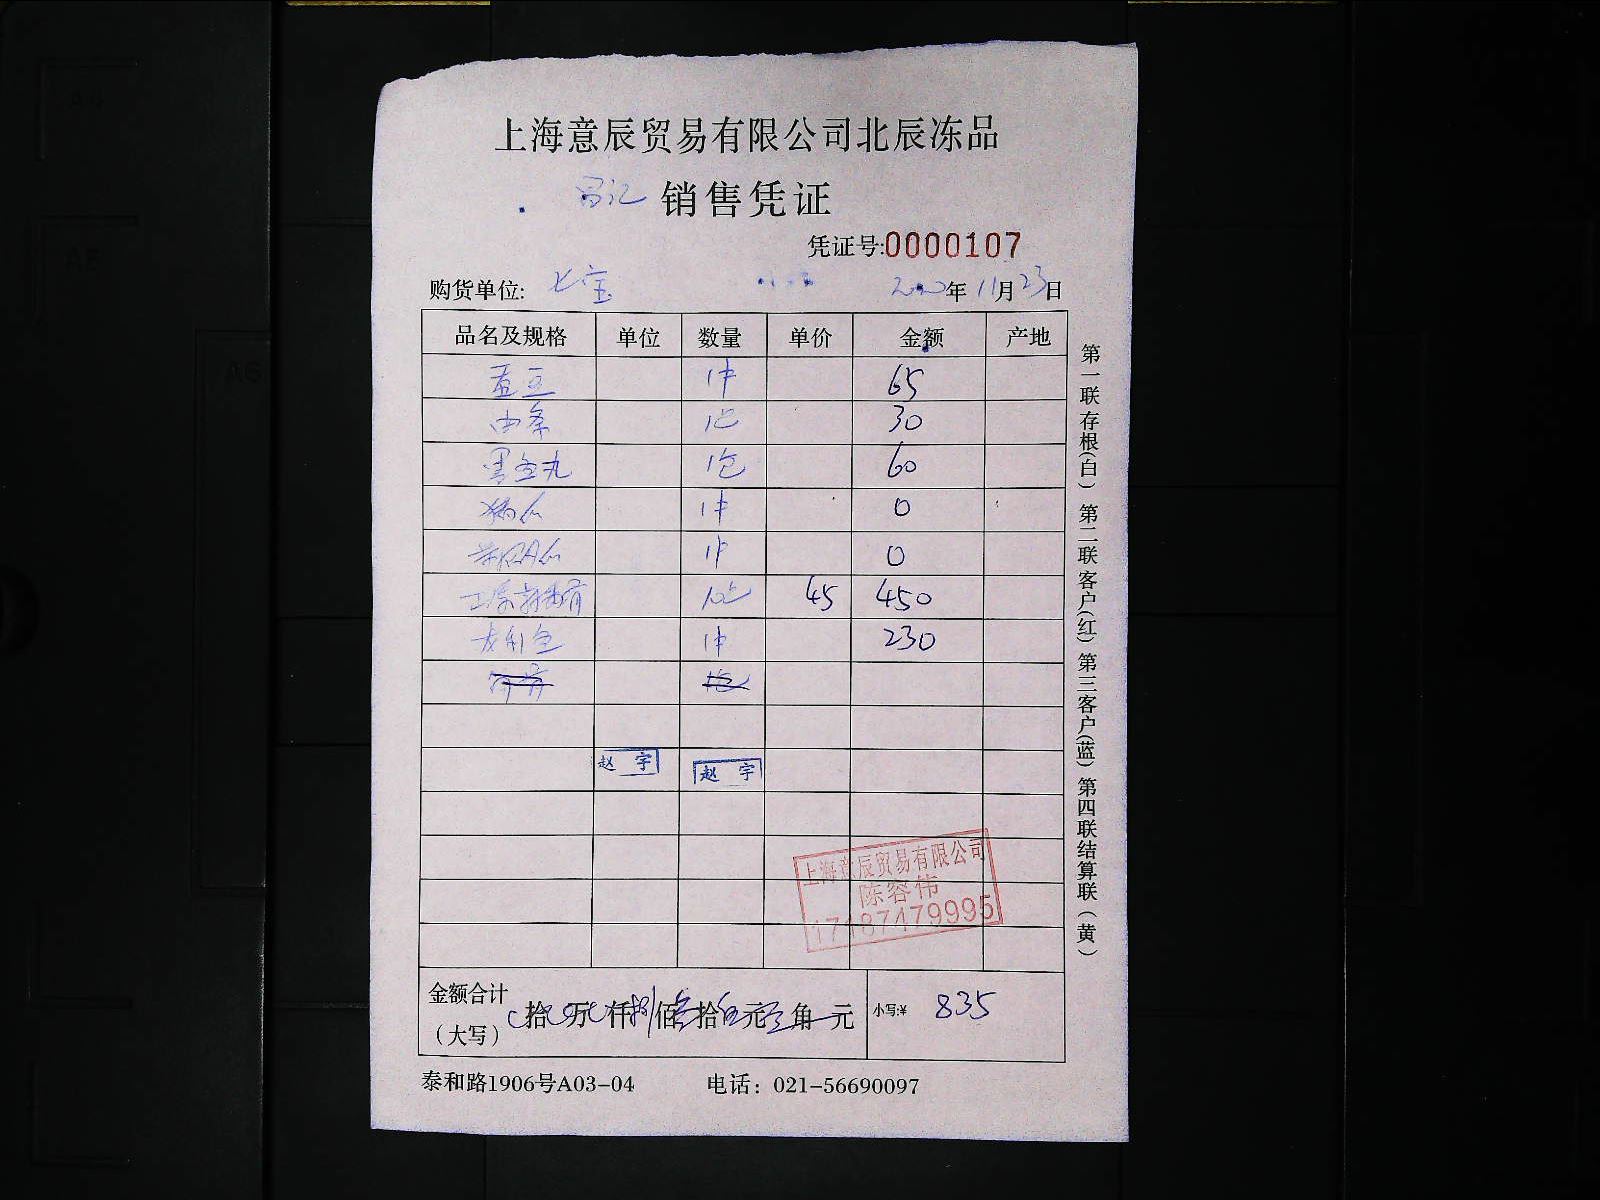 上海意辰贸易有限公司北辰冻品
昌记 销售凭证
凭证号:0000107
购货单位: 七宝 2020年11月23日
品名及规格 单位 数量 单价 金额 产地
1件 65
1包 30
黑鱼丸 1包 60
1件 0
1件 0
10包 45 450
1件 230
赵宇 赵宇
上海意辰贸易有限公司
陈容伟
17187479995
金额合计
(大写) 拾 万 仟 捌 佰 叁 拾 伍 元 角 元 小写:¥ 835
泰和路1906号A03-04 电话：021-56690097
第一联存根(白) 第二联客户(红) 第三客户(蓝) 第四联结算联(黄)